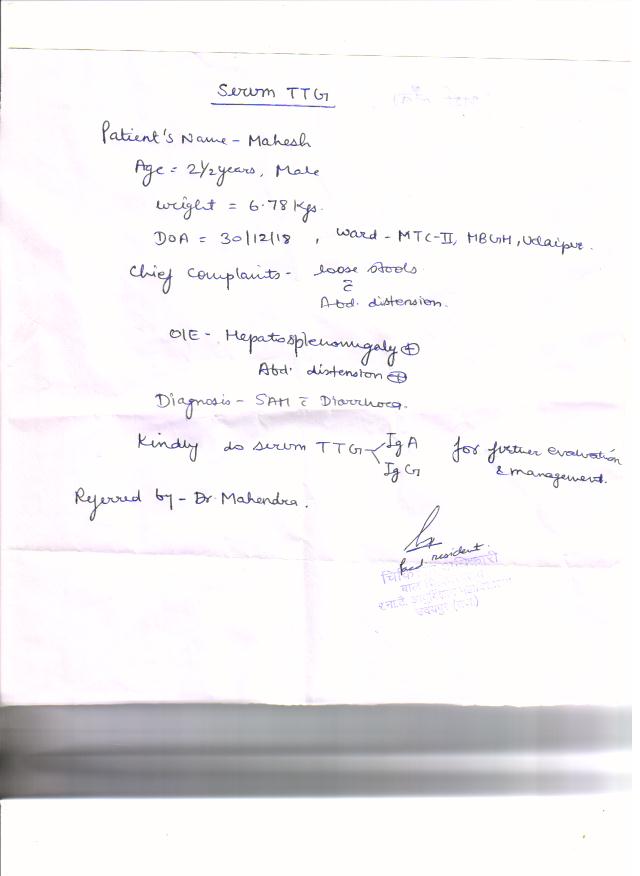 Serum TTG
Patient's Name - Mahesh
Age = 2 1/2 years, Male
weight = 6.78 Kgs.
DOA = 30/12/18 , Ward - MTC-II, MBGH, Udaipur.
Chief Complaints - loose stools
c̄
Abd. distension.
O/E - Hepatosplenomegaly ⊕
Abd. distension ⊕
Diagnosis - SAM c̄ Diarrhoea.
Kindly do serum TTG IgA for further evaluation
IgG & management.
Referred by - Dr. Mahendra.
resident.
उदयपुर (राज.)